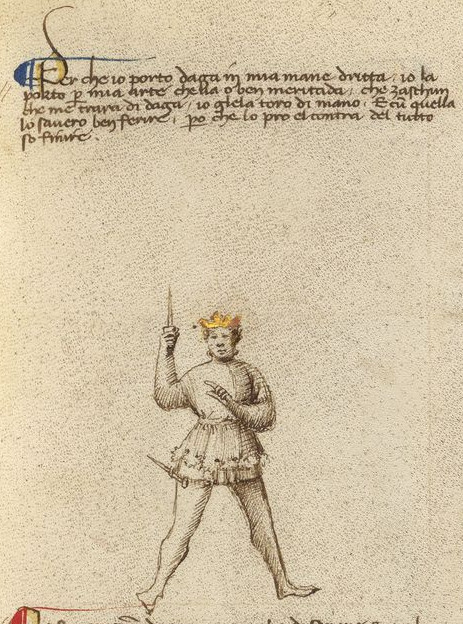 Per che io porto daga in mia mane dritta, io la
porto p mia arte chella o ben meritada, che zaschun
che me trara di daga, io glela toro di mano. E cū quella
lo savero ben ferire, po che lo pro el contra del tutto
so finire.